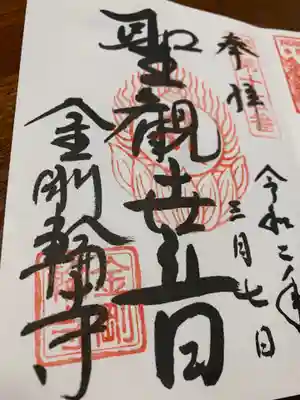 奉拝
令和二年
三月七日
聖觀世音
金剛輪寺